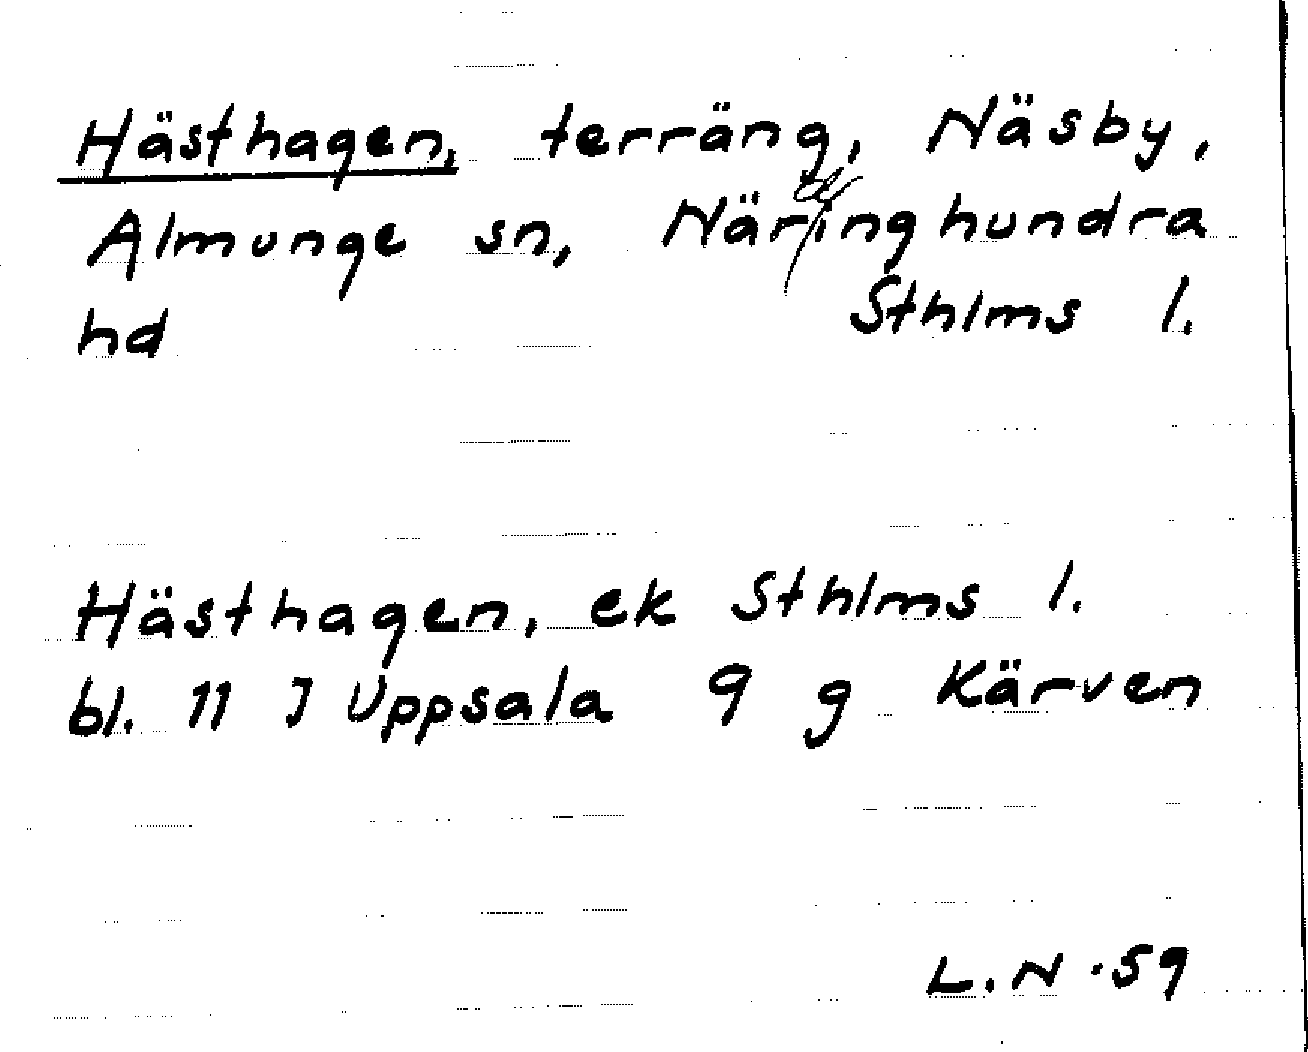 Hästhagen, terräng, Näsby,
Almunge sn, Näringhundra
hd Sthlms l.
Hästhagen, ek Sthlms l.
bl. 11 J Uppsala 9 g Kärven
L.N. 59